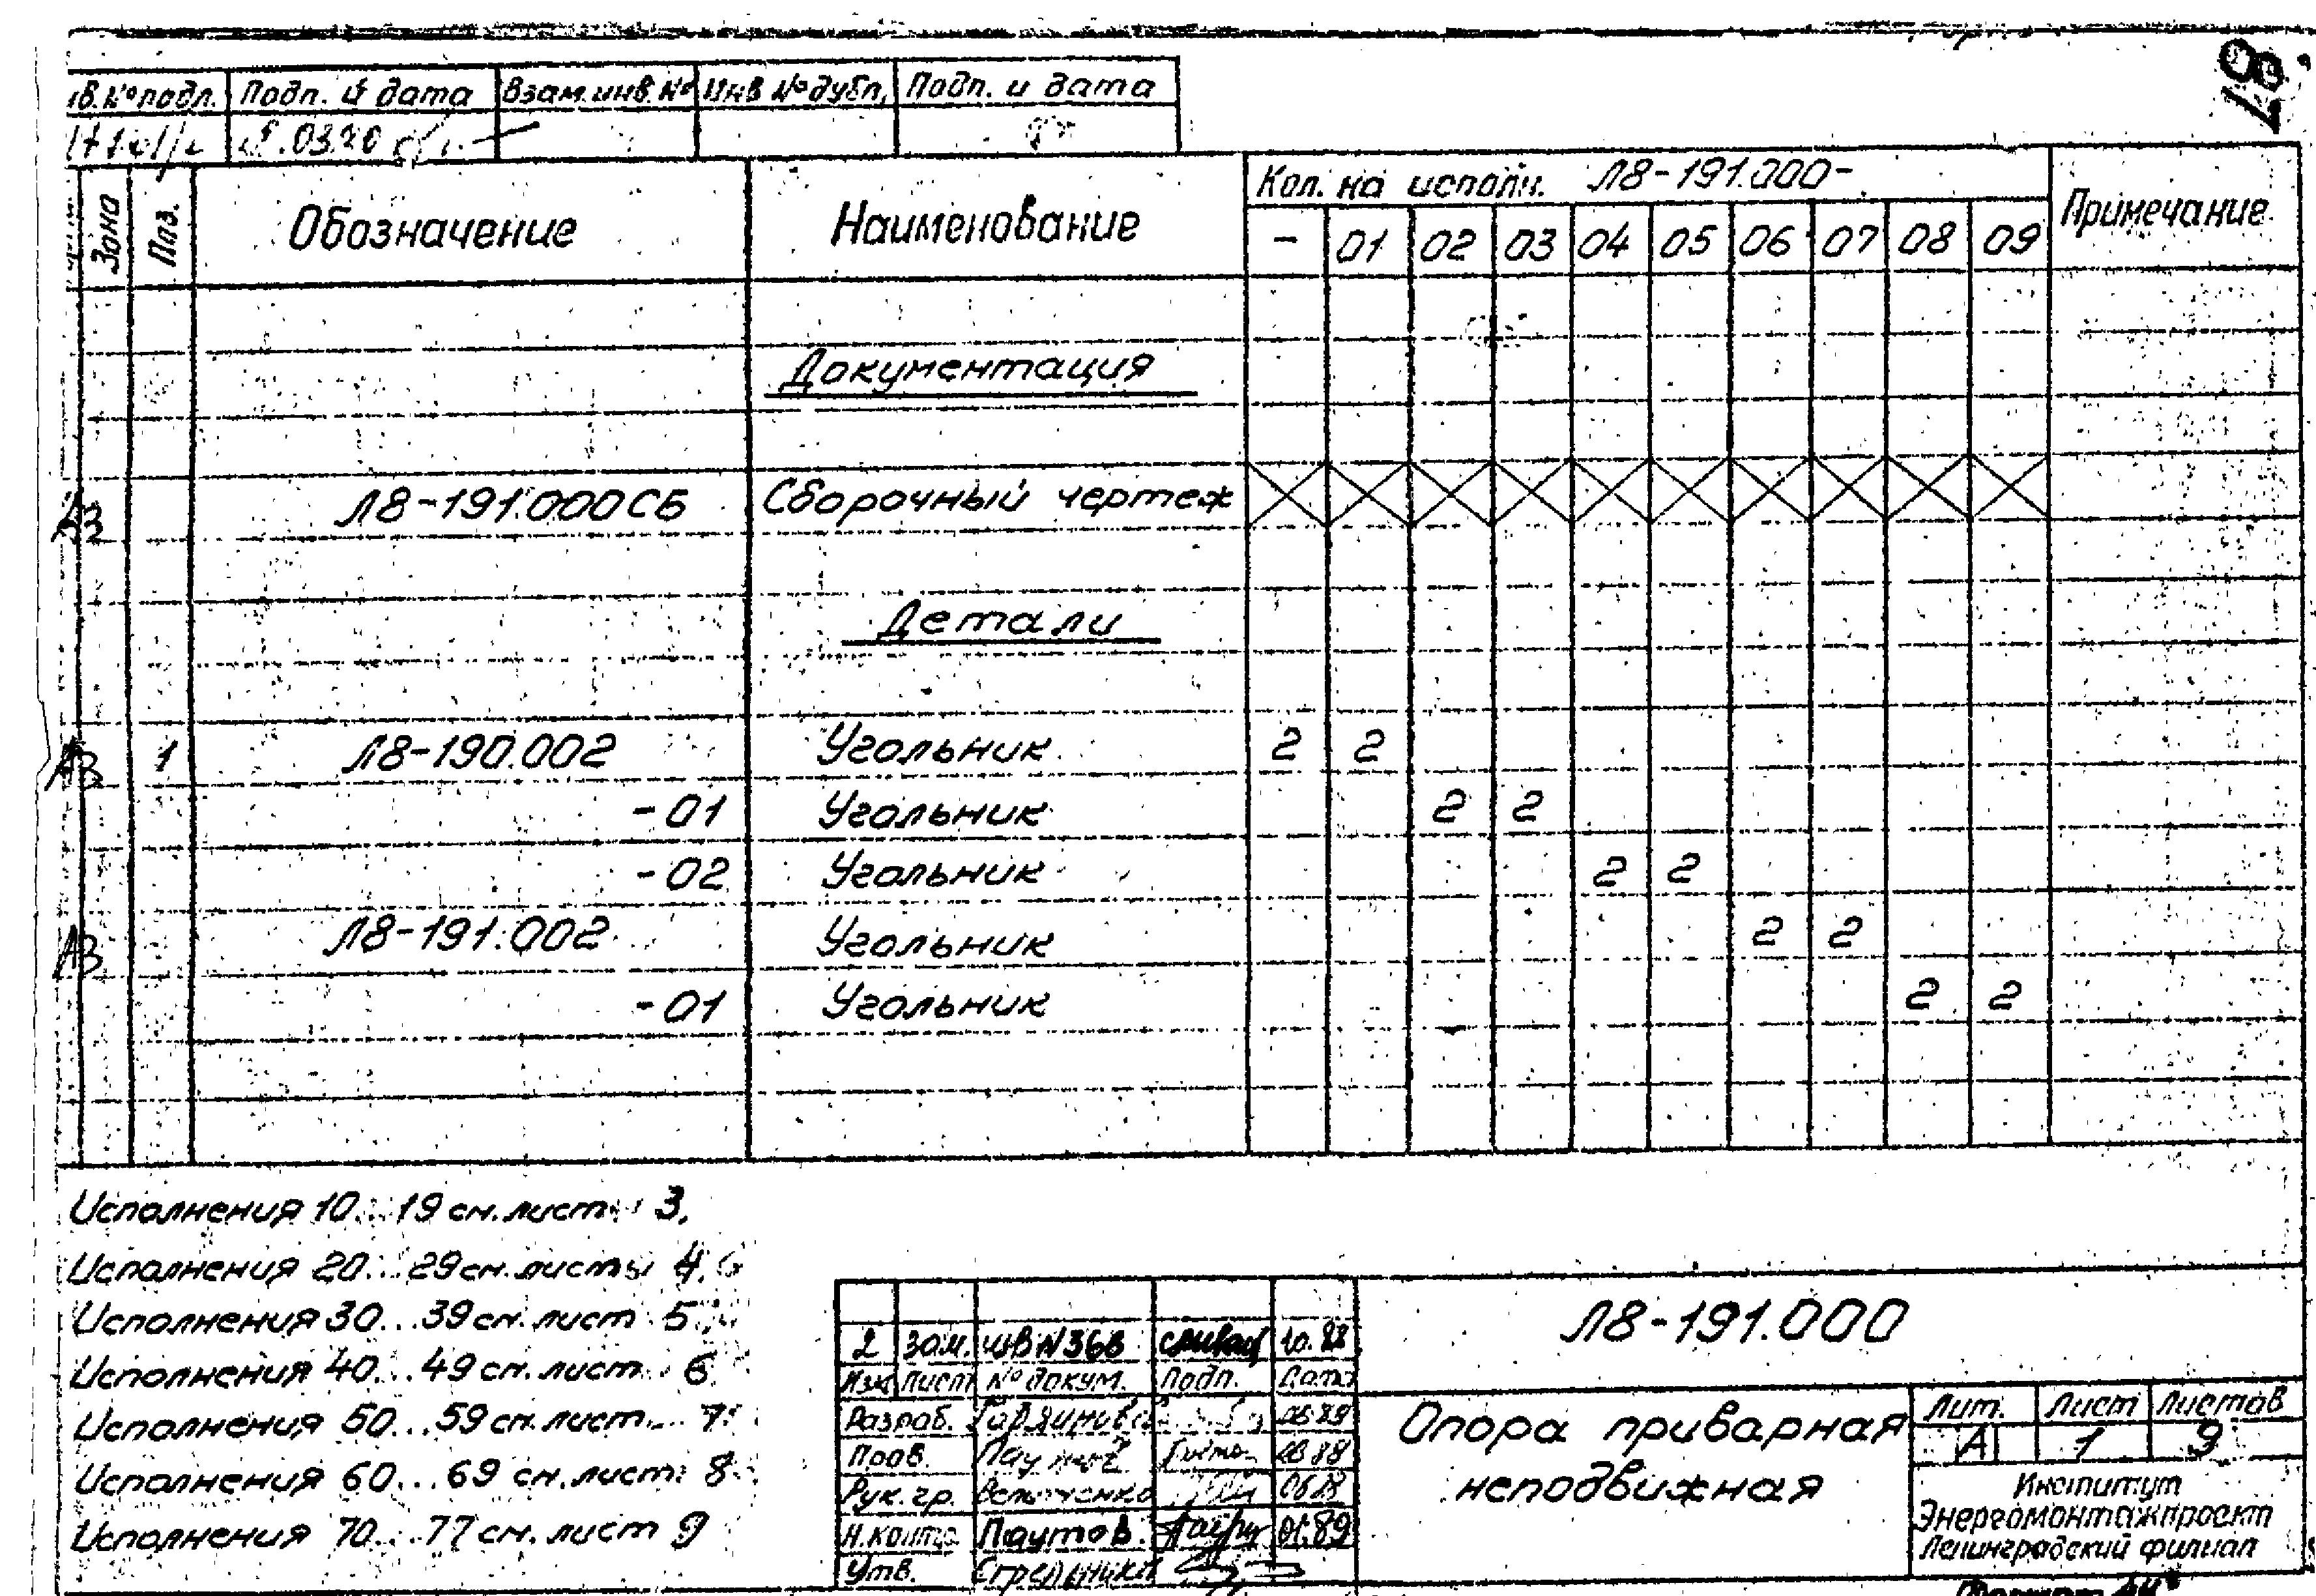 87
Подп. и дата Взам.инв.№ Инв №дубл. Подп. и дата
Зона Поз. Обозначение Наименование Кол. на исполн. Л8-191.000- Примечание
- 01 02 03 04 05 06 07 08 09
Документация
А3 Л8-191.000СБ Сборочный чертеж
Детали
А3 1 Л8-190.002 Угольник 2 2
-01 Угольник 2 2
-02 Угольник 2 2
А3 Л8-191.002 Угольник 2 2
-01 Угольник 2 2
Исполнения 10...19 см. лист 3.
Исполнения 20...29 см. листы 4
Исполнения 30...39 см. лист 5
Исполнения 40...49 см. лист 6
Исполнения 50...59 см. лист 7
Исполнения 60...69 см. лист 8
Исполнения 70...77 см. лист 9
Л8-191.000
2 зам. 10.88
Изм Лист №докум. Подп. Дата
Разраб.
Пров.
Рук.гр.
Н.контр. Паутов 01.89
Утв.
Опора приварная
неподвижная
Лит. Лист Листов
А 1 9
Институт
Энергомонтажпроект
Ленинградский филиал